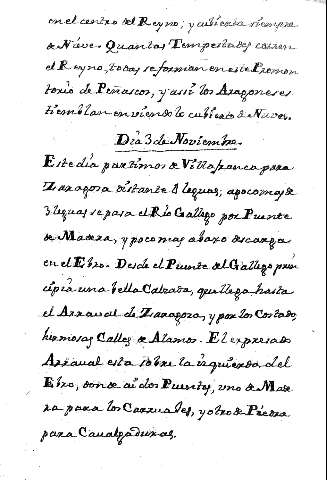 en el centro del Reyno; y cubierta siempre
de Nuve. Quantas Tempestades corren
el Reyno, todas se forman en este Promon
torio de Peñascos, y asi los Aragoneses
tiemblan en viendole cubierto de Nuves.
Dia 3 de Noviembre.
Este dia partimos de Villafranca para
Zaragoza distante 8 leguas; a poco mas de
3 leguas se pasa el Rio Gallego por Puente
de Madera, y poco mas abaxo descarga
en el Ebro. Desde el Puente del Gallego prin
cipia una bella Calzada, que llega hasta
el Arraval de Zaragoza, y por los Costados
hermosas Calles de Alamos. El expresado
Arraval esta sobre la izquierda del
Ebro, donde ai dos Puentes, uno de Made
ra para los Carruales, y otro de Piedra
para Cavalgaduras.